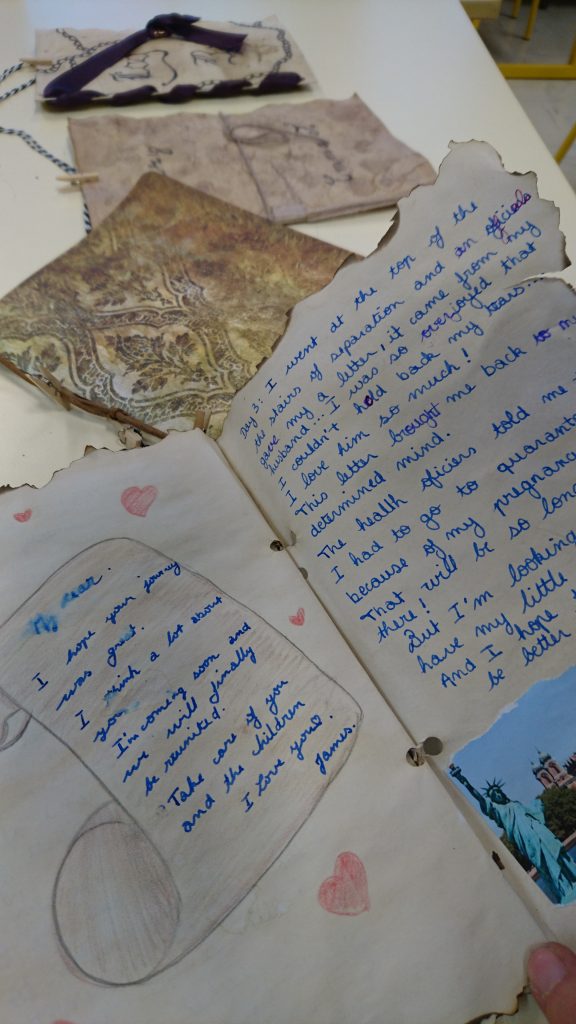 My dear.
I hope your journey
was great.
I think a lot about
you
I'm coming soon and
we will finally
be reunited.
Take care of you
and the children
I love you♡.
James.
Day 3: I went at the top of the
the stairs of separation and an
gave my a letter, it came from my
husband!.. I was so overjoyed that
I couldn't hold back my tears...
I love him so much!
This letter brought me back to my
determined mind.
The health oficiers told me
I had to go to
because of my pregnancy
That will be so long
there!
But I'm looking
have my little
And I hope
be better